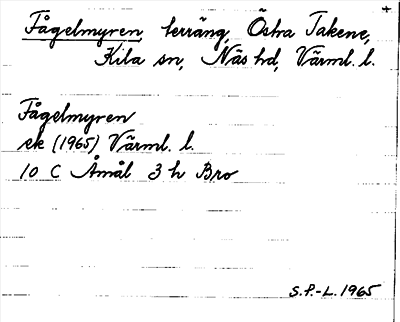 Fågelmyren, terräng, Östra Takene,
Kila sn, Näs hd, Värml. l.
Fågelmyren
ek (1965) Värml. l.
10 C Åmål 3 h Bro
S.P.-L. 1965